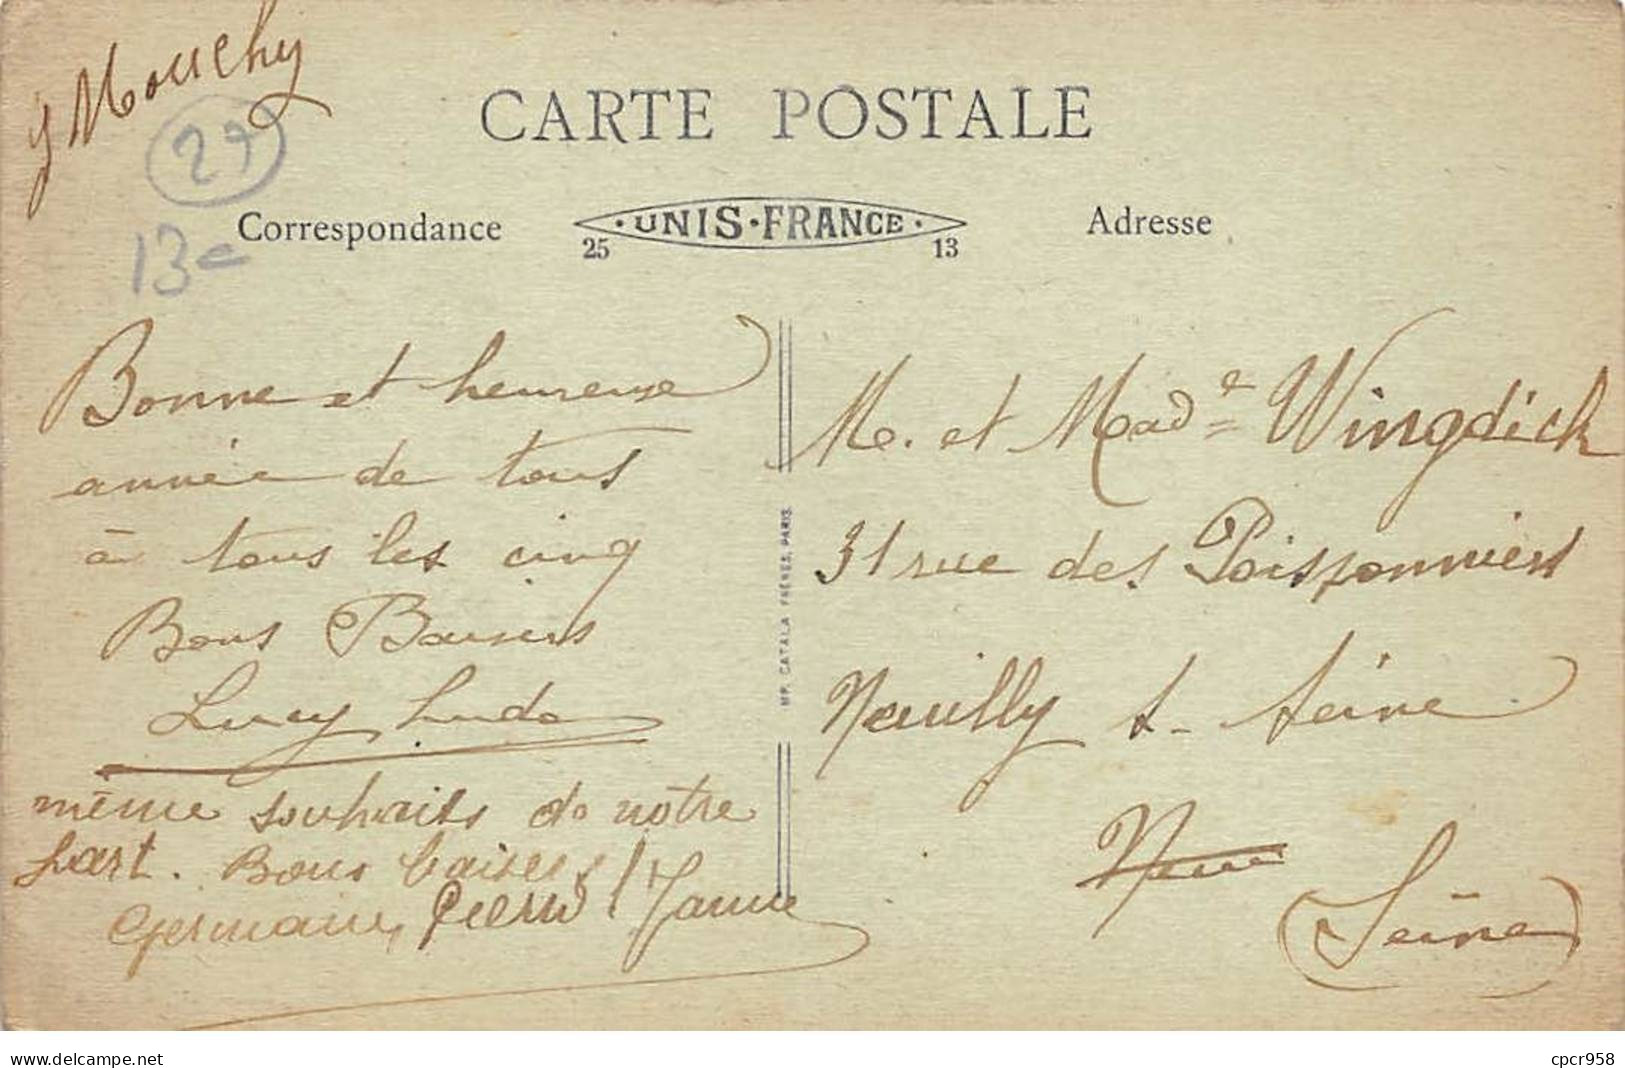 Mouchy
29
13e
CARTE POSTALE
Correspondance
UNIS-FRANCE
25
13
Adresse
Bonne et heureuse
année de tous
à tous les cinq
Bons Baisers
Lucy
même souhaits de notre
part. Bons baisers
Germaine, Pierre
M. et Made Wingdick
31 rue des Poissonniers
Neuilly s- seine
(Seine)
IMP. CATALA FRÈRES, PARIS.
delcampe.net
cpcr958